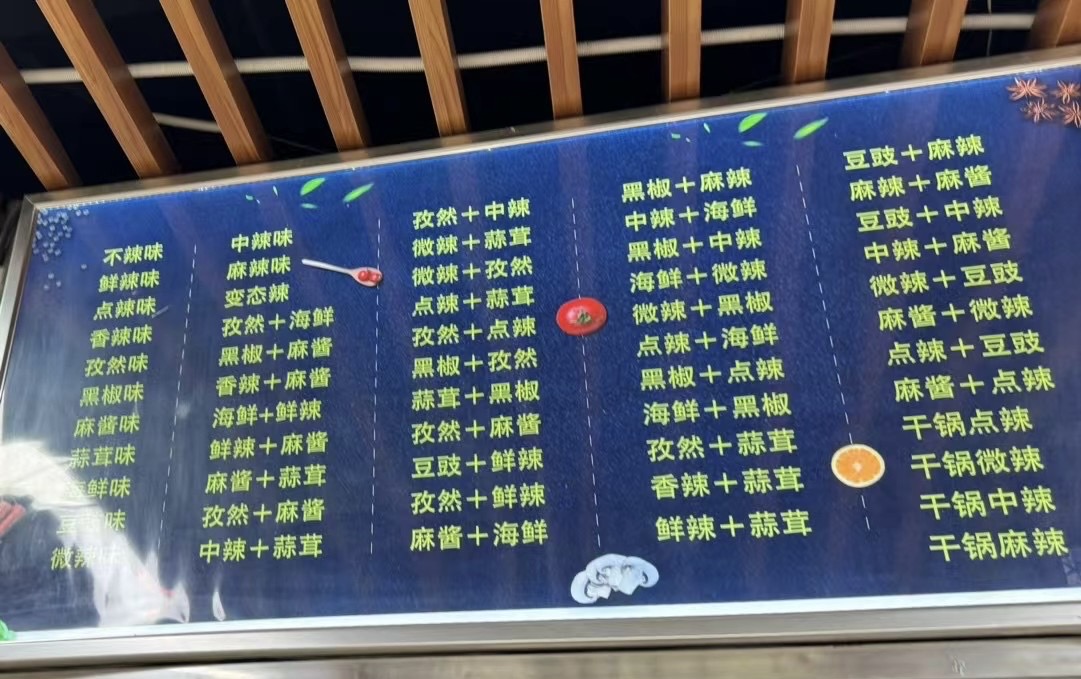 不辣味
鲜辣味
点辣味
香辣味
孜然味
黑椒味
麻酱味
蒜茸味
海鲜味
豆豉味
微辣味
中辣味
麻辣味
变态辣
孜然+海鲜
黑椒+麻酱
香辣+麻酱
海鲜+鲜辣
鲜辣+麻酱
麻酱+蒜茸
孜然+麻酱
中辣+蒜茸
孜然+中辣
微辣+蒜茸
微辣+孜然
点辣+蒜茸
孜然+点辣
黑椒+孜然
蒜茸+黑椒
孜然+麻酱
豆豉+鲜辣
孜然+鲜辣
麻酱+海鲜
黑椒+麻辣
中辣+海鲜
黑椒+中辣
海鲜+微辣
微辣+黑椒
点辣+海鲜
黑椒+点辣
海鲜+黑椒
孜然+蒜茸
香辣+蒜茸
鲜辣+蒜茸
豆豉+麻辣
麻辣+麻酱
豆豉+中辣
中辣+麻酱
微辣+豆豉
麻酱+微辣
点辣+豆豉
麻酱+点辣
干锅点辣
干锅微辣
干锅中辣
干锅麻辣